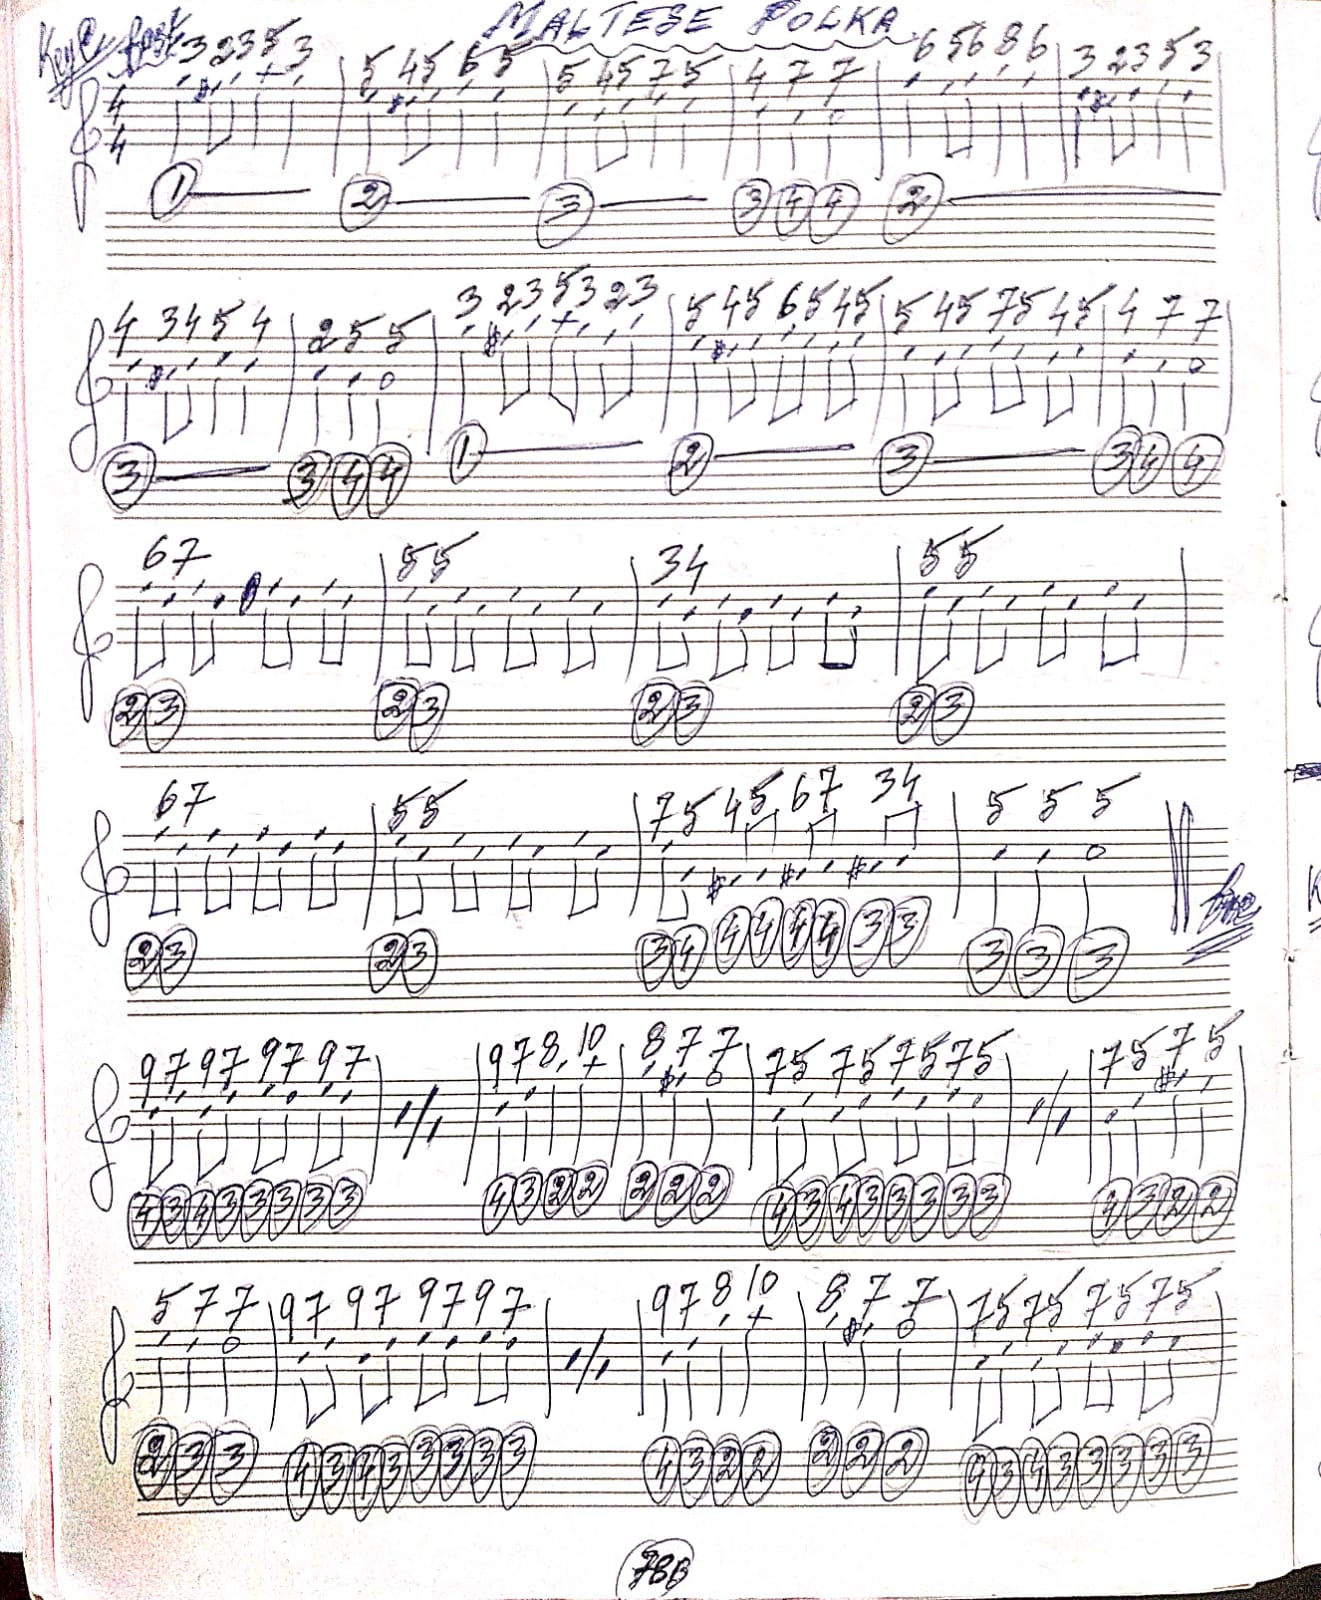 MALTESE POLKA
Key C fast 3 2 3 5 3 5 4 5 6 5 5 4 5 7 5 4 7 7 6 5 6 8 6 3 2 3 5 3
4 4
1 2 3 3 4 4 2
4 3 4 5 4 2 5 5 3 2 3 5 3 2 3 5 4 5 6 5 4 5 5 4 5 7 5 4 5 4 7 7
3 3 4 4 1 2 3 3 4 4
6 7 5 5 3 4 5 5
2 3 2 3 2 3 2 3
6 7 5 5 7 5 4 5 6 7 3 4 5 5 5
fine
2 3 2 3 3 4 4 4 4 4 3 3 3 3 3
9 7 9 7 9 7 9 7 9 7 8 10 8 7 7 7 5 7 5 7 5 7 5 7 5 7 5
4 3 4 3 3 3 3 3 4 3 2 2 2 2 2 4 3 4 3 3 3 3 3 4 3 2 2
5 7 7 9 7 9 7 9 7 9 7 9 7 8 10 8 7 7 7 5 7 5 7 5 7 5
2 3 3 4 3 4 3 3 3 3 3 4 3 2 2 2 2 2 4 3 4 3 3 3 3 3
78B